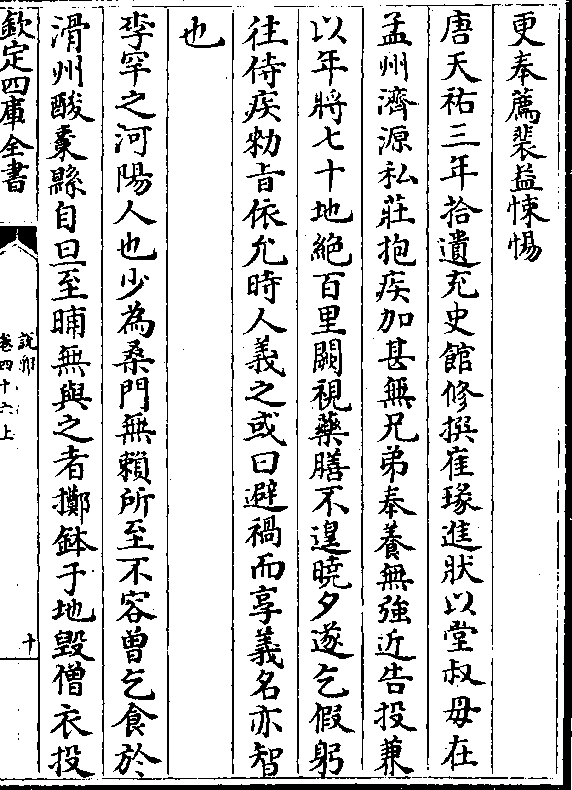 更奉薦裴益悚惕
唐天祐三年拾遺充史館修撰崔瑑進狀以堂叔母在
孟州濟源私莊抱疾加甚無兄弟奉養無強近告投兼
以年將七十地絶百里闕視藥膳不遑曉夕遂乞假躬
往侍疾勑旨依允時人義之或曰避禍而享義名亦智
也
李罕之河陽人也少為桑門無賴所至不容曽乞食於
滑州酸棗縣自旦至晡無與之者擲鉢于地毁僧衣投
欽定四庫全書
說郛
卷四十六上
十